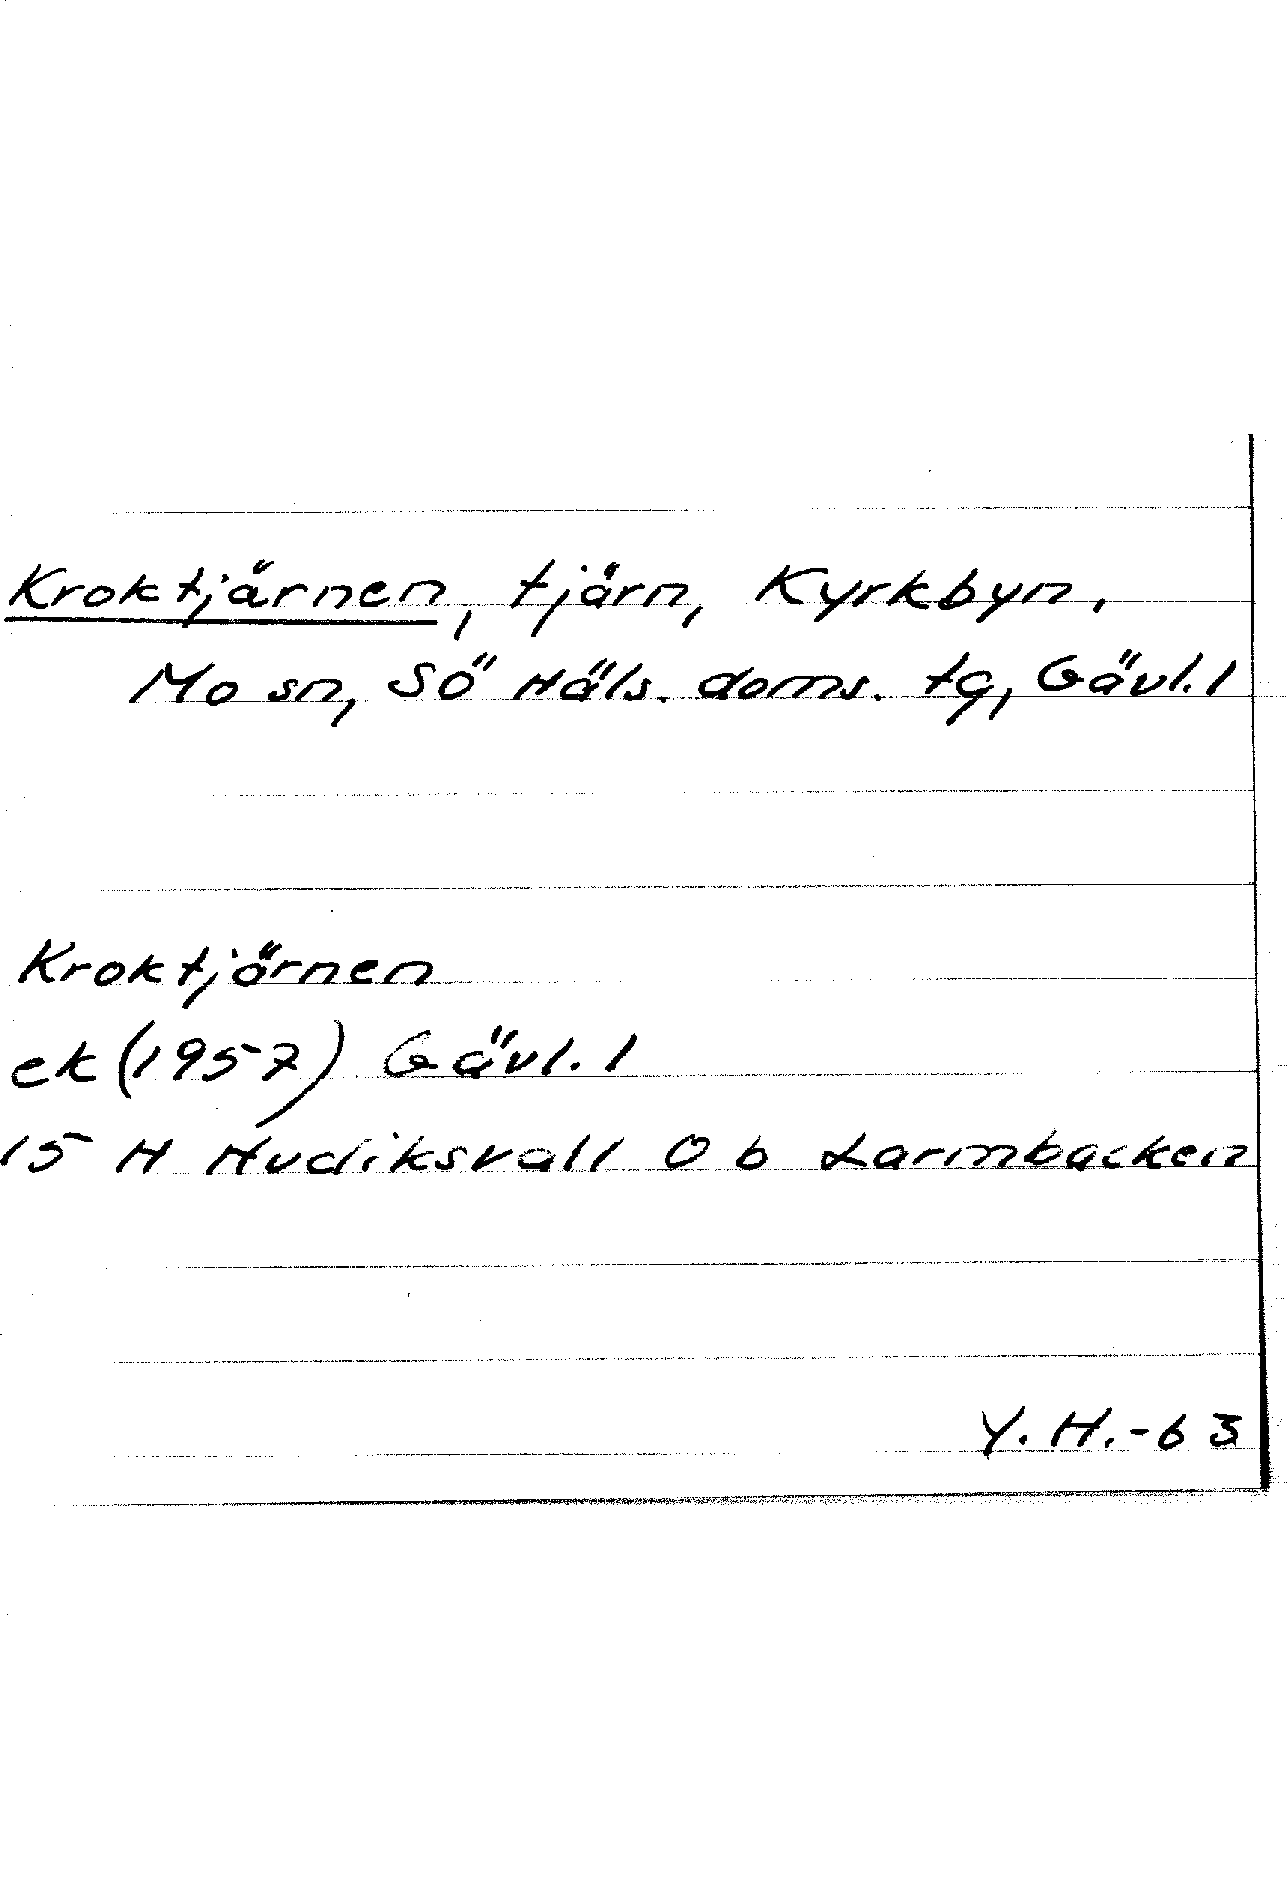 Kroktjärnen, tjärn, Kyrkbyn,
Mo sn, Sö Häls. doms. tg, Gävl. l
Kroktjärnen
ek (1957) Gävl. l
15 H Hudiksvall 0 b Larmbacken
Y. H. -63